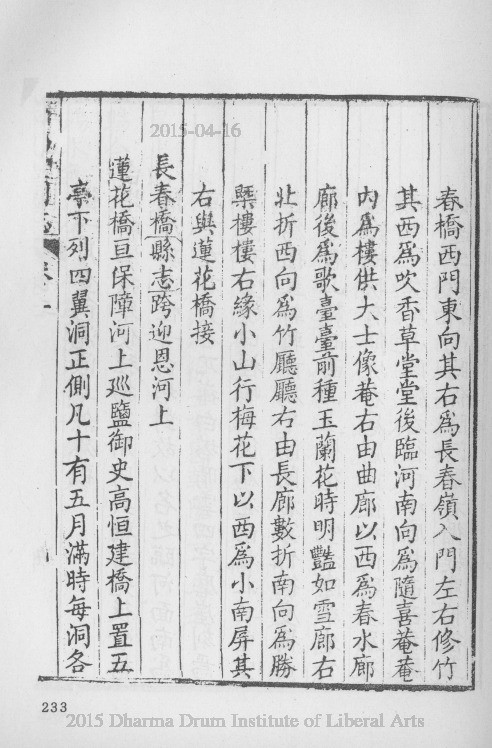 2015-04-16
春橋西門東向其右爲長春嶺入門左右修竹
其西爲吹香草堂堂後臨河南向爲隨喜菴菴
內爲樓供大士像菴右由曲廊以西爲春水廊
廊後爲歌臺臺前種玉蘭花時明豔如雪廊右
北折西向爲竹廳廳右由長廊數折南向爲勝
槩樓樓右緣小山行梅花下以西爲小南屏其
右與蓮花橋接
長春橋縣志跨迎恩河上
蓮花橋亘保障河上巡鹽御史高恒建橋上置五
亭下列四翼洞正側凡十有五月滿時每洞各
233
2015 Dharma Drum Institute of Liberal Arts